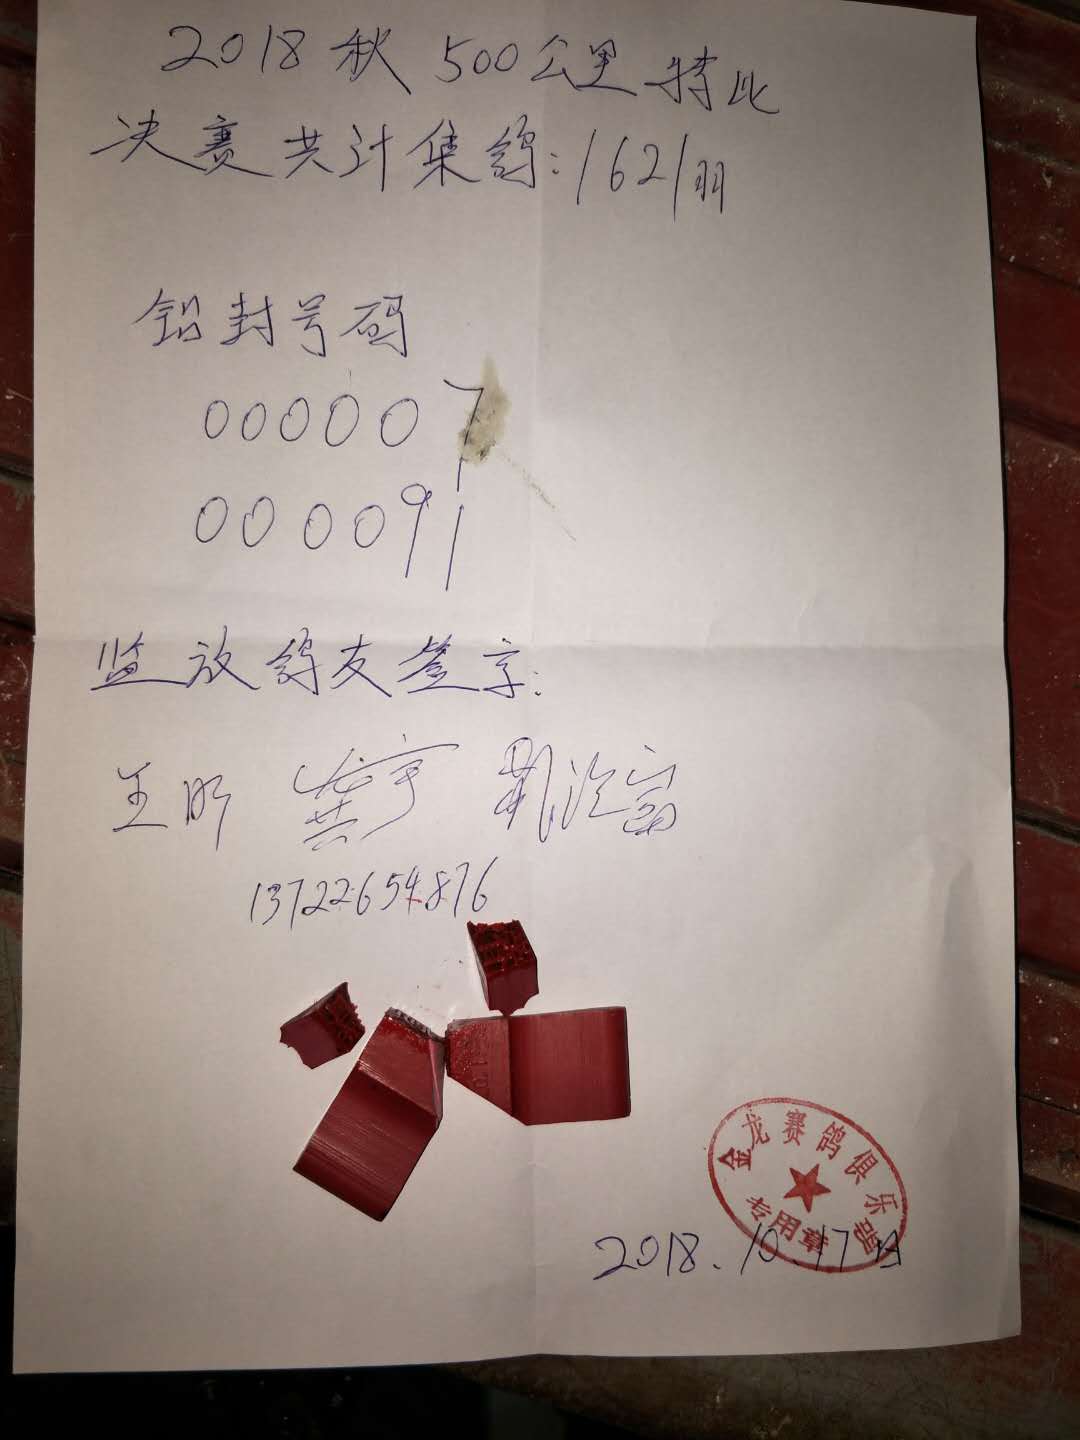 2018秋500公里特比
决赛共计集鸽:1621羽
铅封号码
000007
000091
监放鸽友签字:
王昕 龚宇
13722654876
金龙赛鸽俱乐部
专用章
2018.10.17日